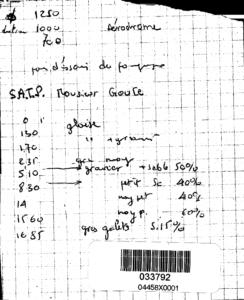 1250
1000 Aérodrome
700
pas d'essai de pompage
S.A.T.P. Monsieur Goule
0 1 glaise
1.30 " + gravier
1.70
2.35 gros moy
5.10 gravier + sable 50%
8.30 petit Sc. 40%
14 moy pet 40%
15.60 moy p. 60%
16.85 gros galets 5.15%
033792
04458X0001